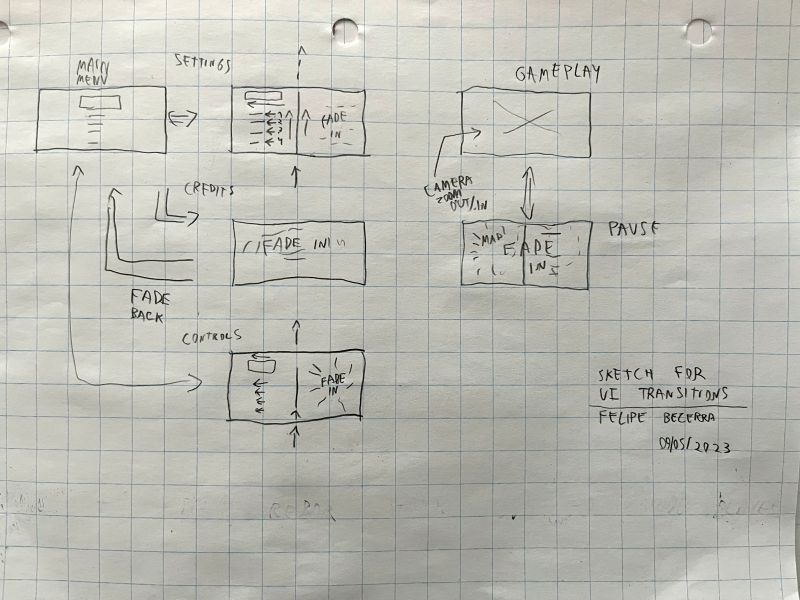 MAIN
MENU
SETTINGS
FADE
IN
1
2
3
4
CREDITS
FADE IN
FADE
BACK
CONTROLS
FADE
IN
GAMEPLAY
CAMERA
ZOOM
OUT/IN
PAUSE
MAP
FADE
IN
SKETCH FOR
UI TRANSITIONS
FELIPE BECERRA
09/05/2023